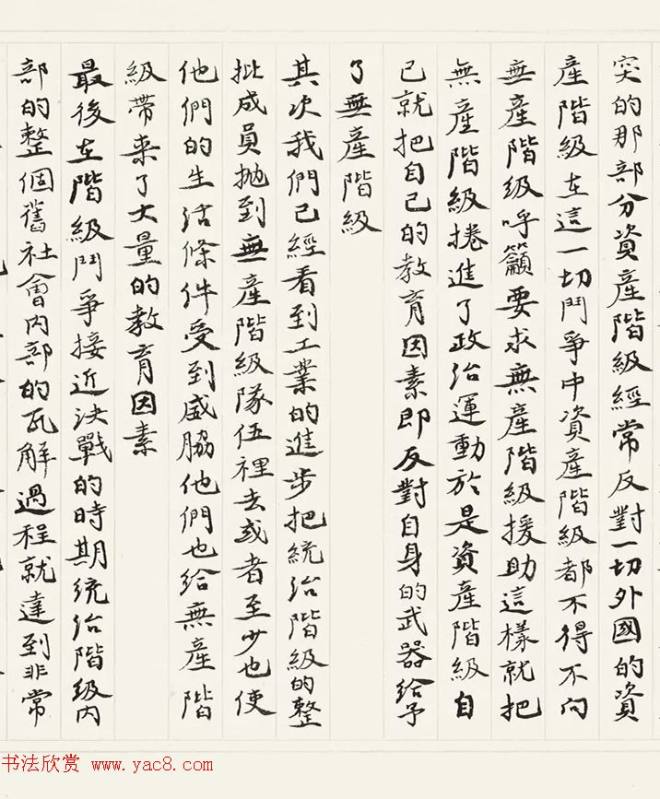 突的那部分資產階級經常反對一切外國的資
產階級在這一切鬥爭中資產階級都不得不向
無產階級呼籲要求無產階級援助這樣就把
無產階級捲進了政治運動於是資產階級自
己就把自己的教育因素即反對自身的武器給予
了無產階級
其次我們已經看到工業的進步把統治階級的整
批成員拋到無產階級隊伍裡去或者至少也使
他們的生活條件受到威脇他們也給無產階
級帶来了大量的教育因素
最後在階級鬥爭接近決戰的時期統治階級内
部的整個舊社會内部的瓦解過程就達到非常
书法欣赏 www.yac8.com